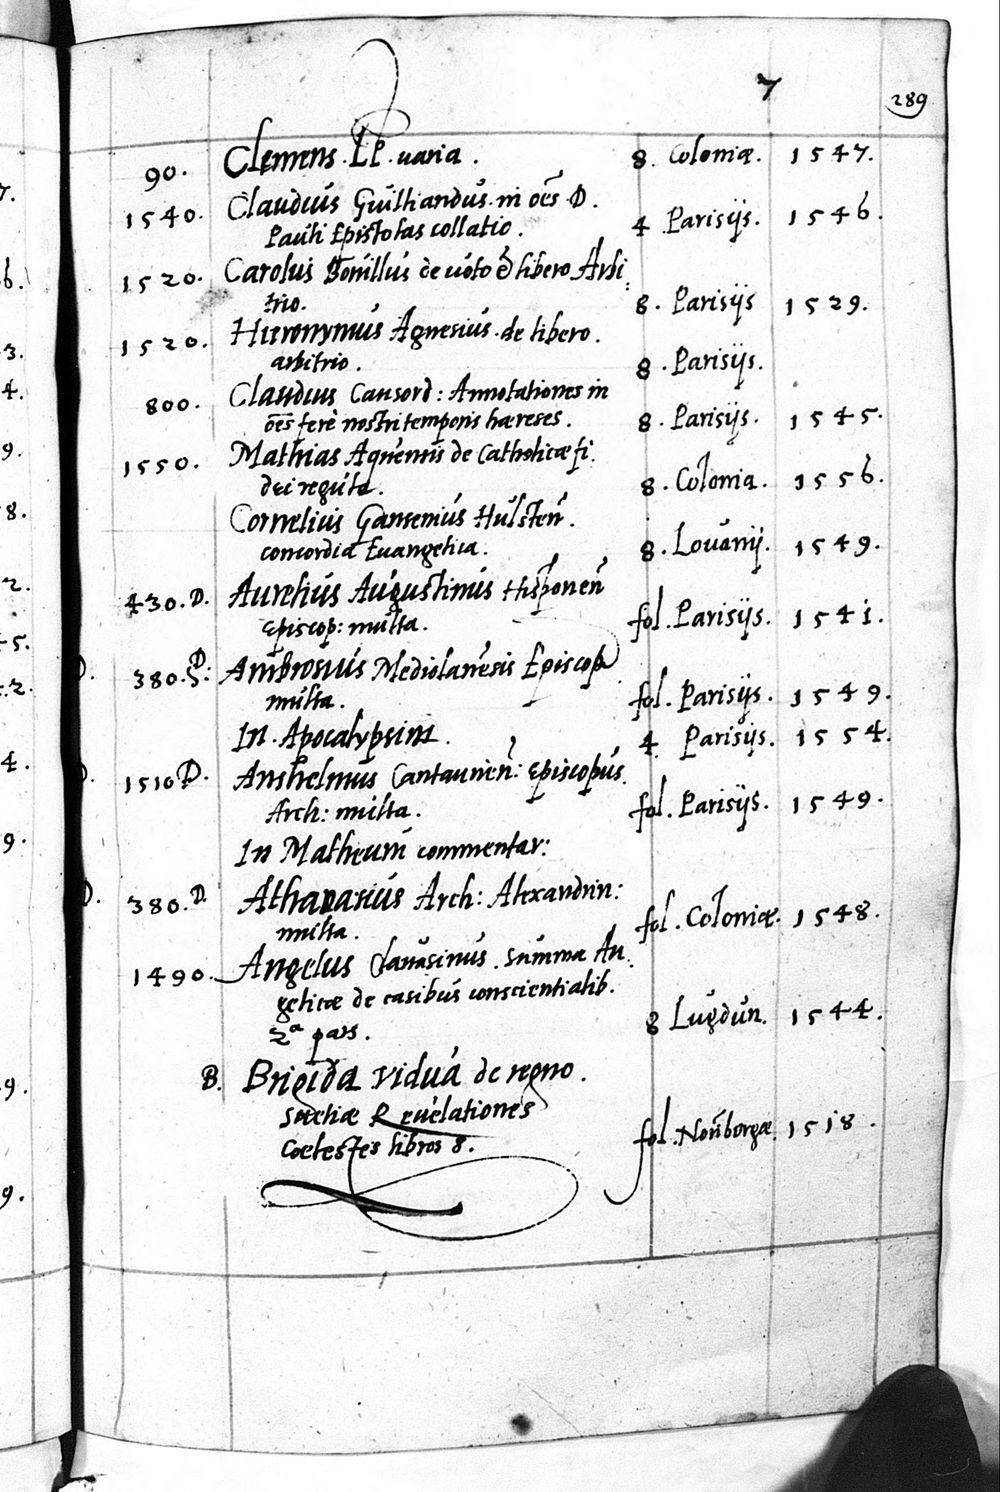 7
289
90. Clemens. PP. uaria. 8. Coloniæ. 1547.
1540. Claudius Guilliandus in oēs D.
Pauli Epistolas collatio. 4 Parisijs. 1546.
1520. Carolus Bouillus de uoto & libero Arbi
trio. 8. Parisijs 1529.
1520. Hieronymus Agnesius de libero.
arbitrio. 8. Parisijs.
800. Claudius Causord: Annotationes in
oēs ferè nostri temporis hæreses. 8. Parisijs. 1545.
1550. Mathias Aquensis de Catholicæ fi.
dei regula. 8. Colonia. 1556.
Cornelius Gansenius Hulsten.
concordia Euangelica. 8. Louanij. 1549.
430. D. Aurelius Augustinus Hisponen
Episcop: multa. fol. Parisijs. 1541.
380. D. Ambrosius Mediolanēsis Episcop
multa. fol. Parisijs. 1549.
In Apocalypsim. 4 Parisijs. 1554.
1510 D. Anshelmus Cantaurien: Episcopus.
Arch: multa. fol. Parisijs. 1549.
In Matheum commentar:
380. D. Athanasius Arch: Alexandrin:
multa. fol. Coloniæ. 1548.
1490. Angelus Clauasinus. Summa An
gelicæ de casibus conscientialib.
2ª pars. 8 Lugdun. 1544.
B. Brigida vidua de regno.
Suetiæ Reuelationes
Coelestes libros 8. fol. Norīborgæ. 1518.